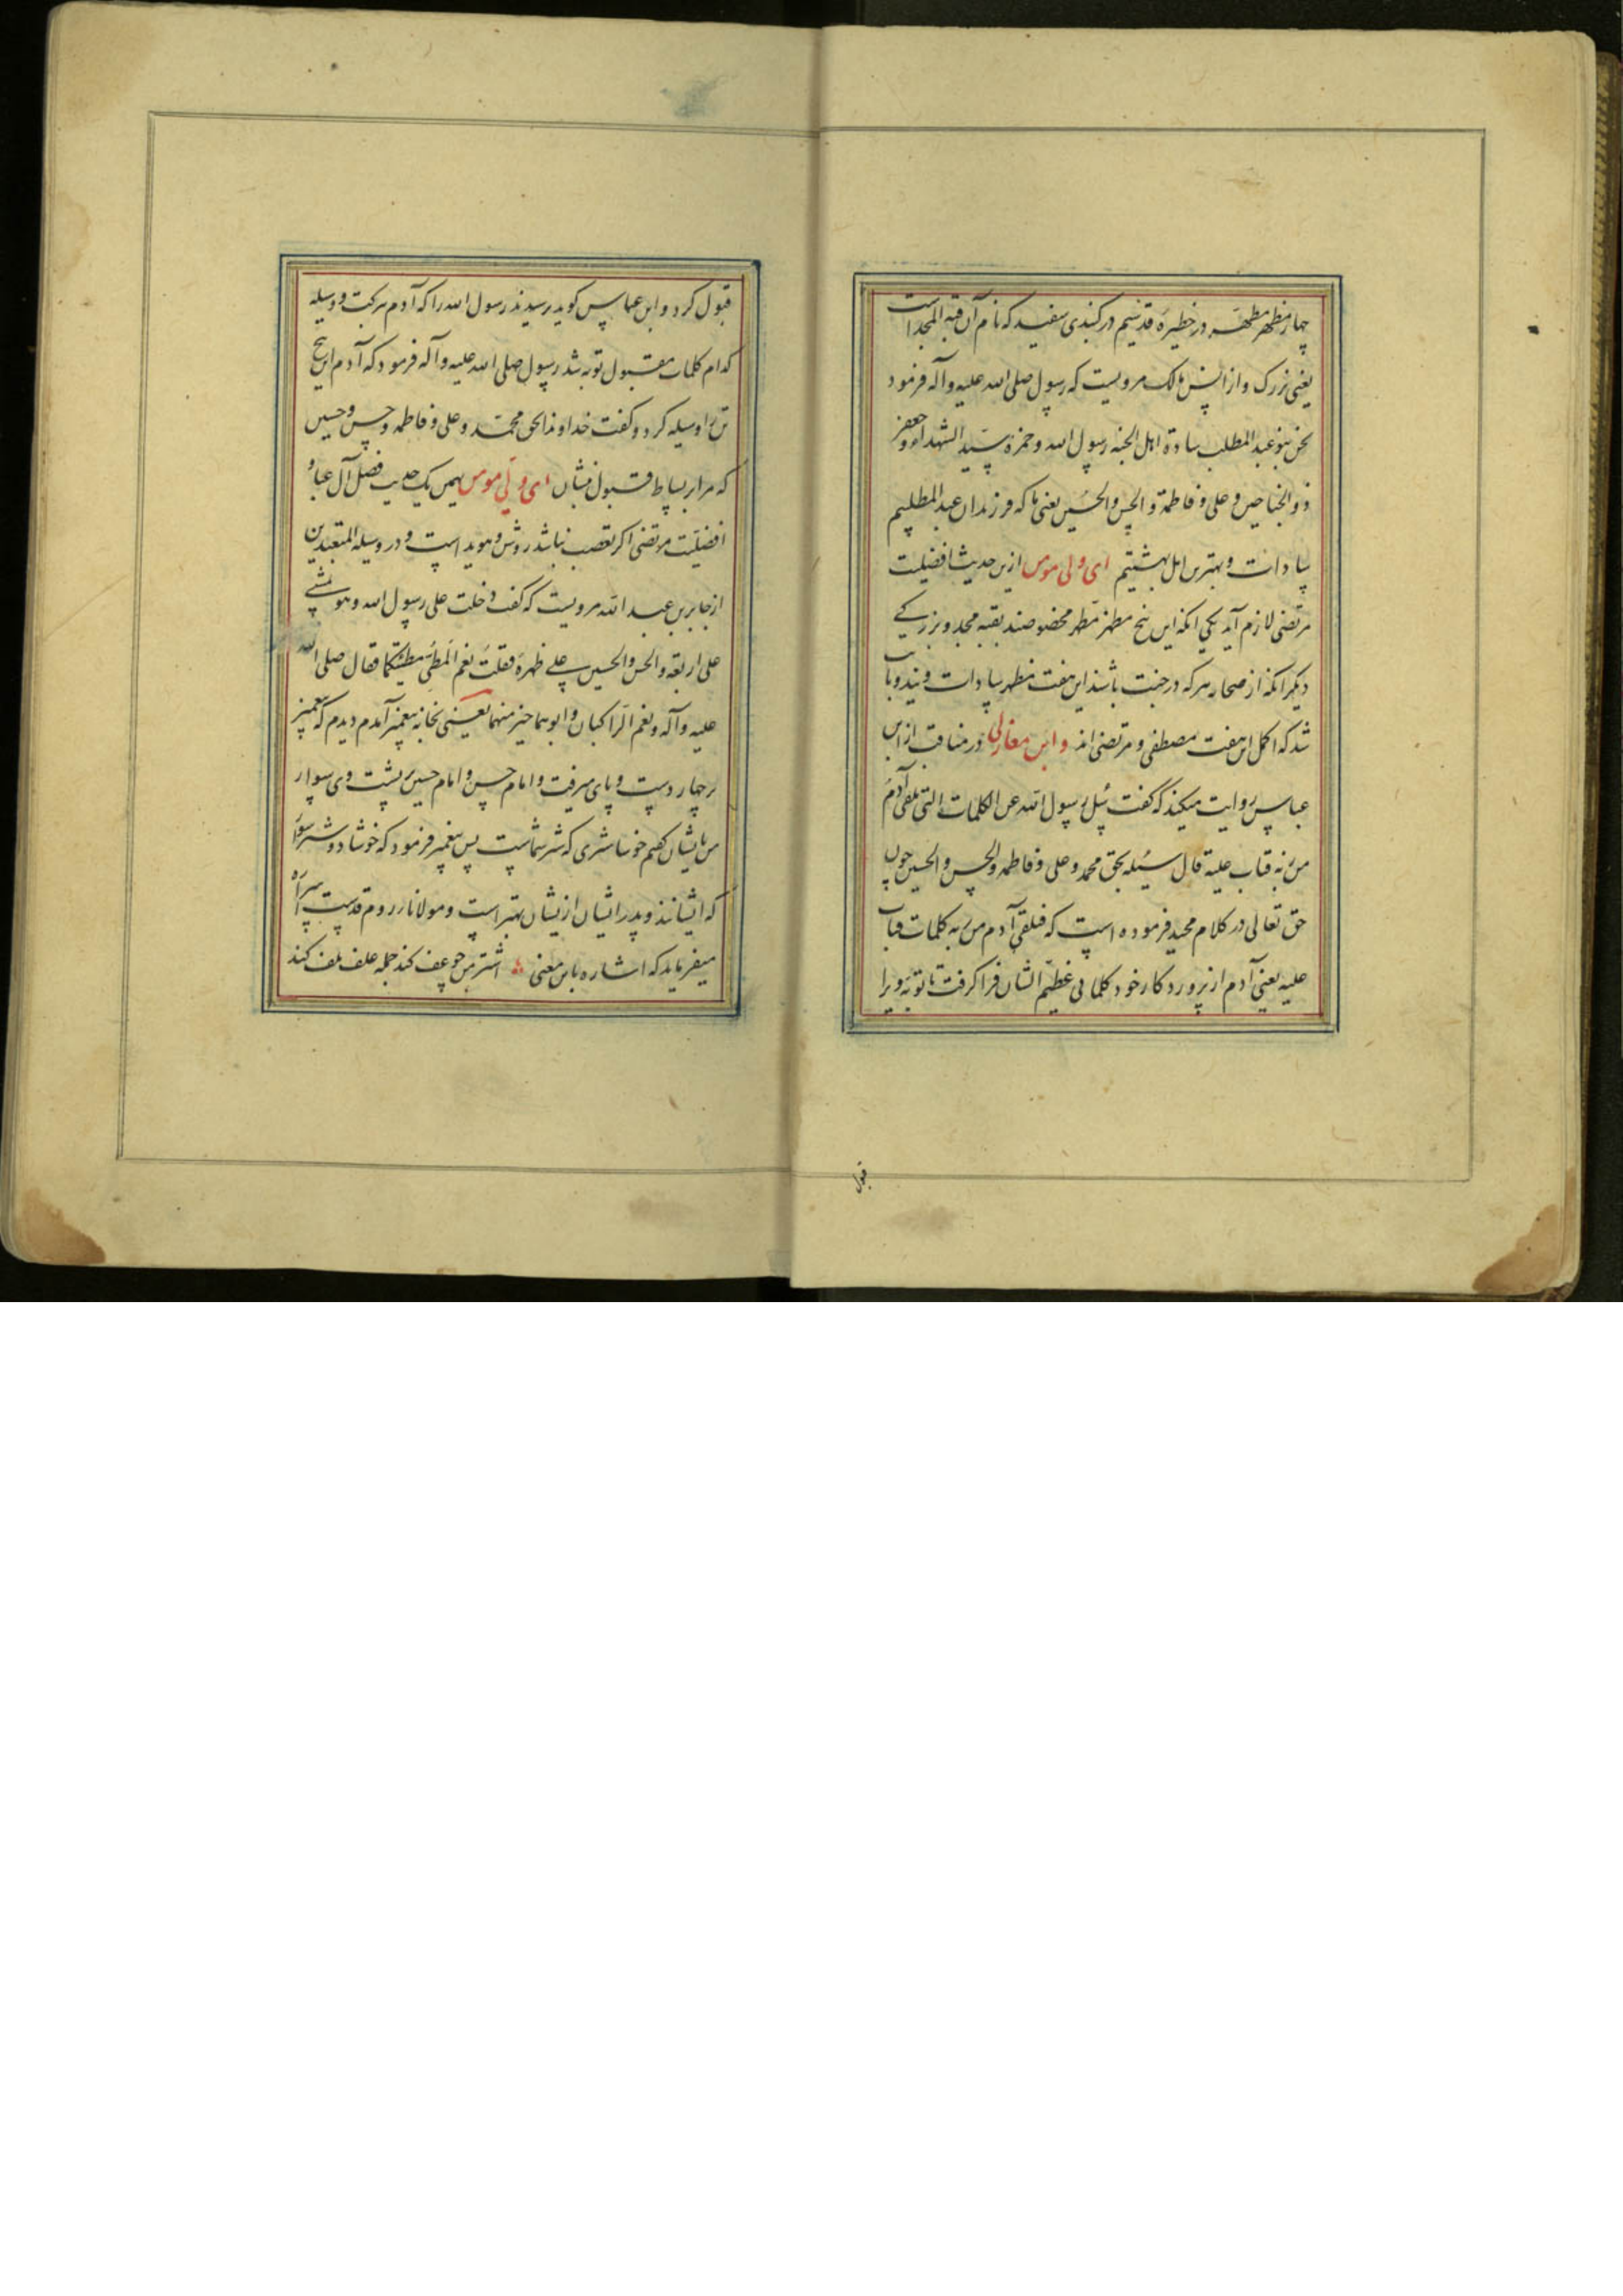 چهار مظهر مطهر در خطیره قدسیم در کنبدی سفید که نام آن قبة المجد است
یعنی بزرک و از انس مالک مرویست که رسول صلی الله علیه وآله فرمود
نحن بنو عبد المطلب سادة اهل الجنه رسول الله وحمزة سید الشهداء وجعفر
ذو الجناحین وعلی وفاطمة والحسن والحسین یعنی ما که فرزندان عبد المطلبیم
سادات وبهترین اهل بهشتیم ای ولی مومن ازین حدیث افضلیت
مرتضی لازم آید یکی انکه این پنج مظهر مطهر مخصوصند بقبه مجد وبزرکے
دیکر انکه از صحابه هرکه در جنت باشند این هفت مظهر سادات ویند وثابت
شد که اکمل این هفت مصطفی ومرتضی اند وابن مغازلی در مناقب از ابن
عباس روایت میکند که کفت سئل رسول الله عن الکلمات التی تلقی آدم
من ربه فتاب علیه قال سئله بحق محمد وعلی وفاطمه والحسن والحسین چون
حق تعالی در کلام مجید فرموده است که فتلقی آدم من ربه کلمات فتاب
علیه یعنی آدم از پروردکار خود کلماتی عظیم الشان فرا کرفت تا توبه ویرا
قبول
قبول کرد وابن عباس کوید پرسیدند رسول الله را که آدم ببرکت ووسیله
کدام کلمات مقبول توبه شد رسول صلی الله علیه وآله فرمود که آدم این پنج
تن را وسیله کرد وکفت خداوندا بحق محمد وعلی وفاطمه وحسن وحسین
که مرا بر بساط قبول نشان ای ولی مومن بهمین یک حدیث فضل آل عبا و
افضلیت مرتضی اکر تعصب نباشد روشن وهویداست ودر وسیلة المتعبدین
از جابر بن عبد الله مرویست که کفت دخلت علی رسول الله وهو یمشے
علی اربعة والحسن والحسین علے ظهره فقلت نعم المطی مطیتکما فقال صلی الله
علیه وآله ونعم الراکبان وابوهما خیر منهما یعنی بخانه پیغمبر آمدم دیدم که پیغمبر
بر چهار دست وپای میرفت وامام حسن وامام حسین بر پشت وی سوار
من بایشان کفتم خوشا شتری که شتر شماست پس پیغمبر فرمود که خوشا دو شتر سوار
که ایشانند وپدر ایشان از ایشان بهتر است ومولانا در روم قدست سراه
میفرماید که اشاره باین معنی اشتر من چو عف کند جمله علف تلف کند